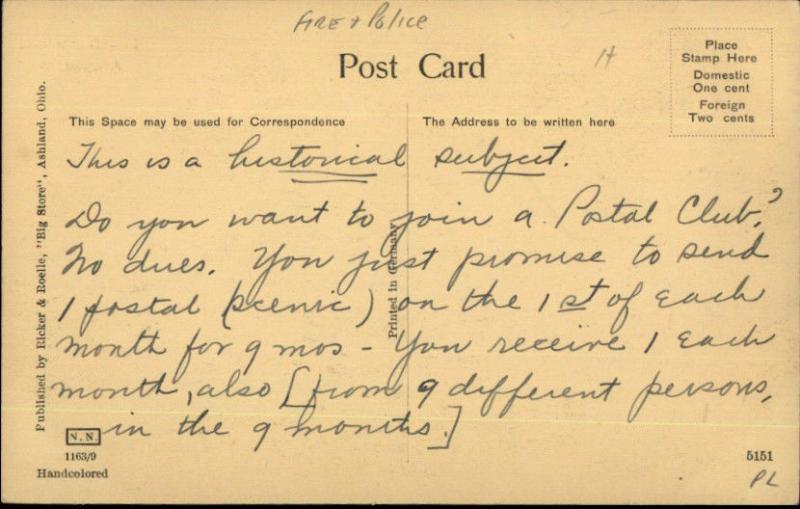 Fire & Police
H
Post Card
Place
Stamp Here
Domestic
One cent
Foreign
Two cents
This Space may be used for Correspondence
The Address to be written here
This is a historical subject.
Do you want to join a Postal Club?
No dues. You just promise to send
1 postal (scenic) on the 1st of each
month for 9 mos - You receive 1 each
month, also [from 9 different persons,
in the 9 months.]
Published by Eicker & Roelle, "Big Store", Ashland, Ohio.
Printed in Germany
N.N.
1163/9
Handcolored
5151
PL